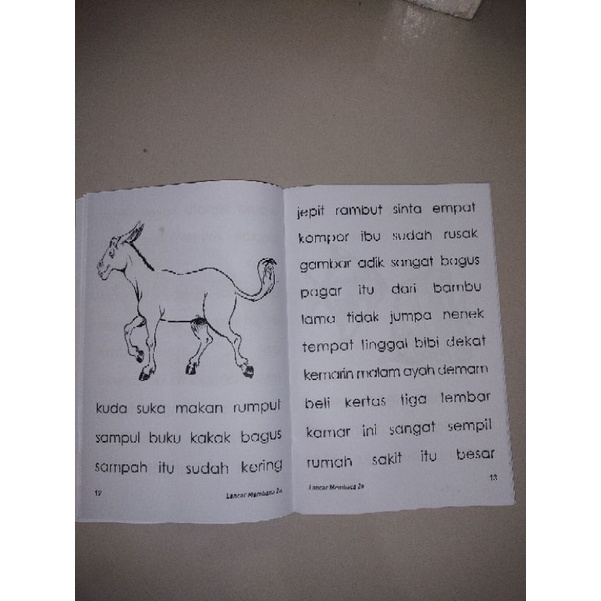 kuda suka makan rumput
sampul buku kakak bagus
sampah itu sudah kering
12
Lancar Membaca 2a
jepit rambut sinta empat
kompor ibu sudah rusak
gambar adik sangat bagus
pagar itu dari bambu
lama tidak jumpa nenek
tempat tinggal bibi dekat
kemarin malam ayah demam
beli kertas tiga lembar
kamar ini sangat sempit
rumah sakit itu besar
Lancar Membaca 2a
13